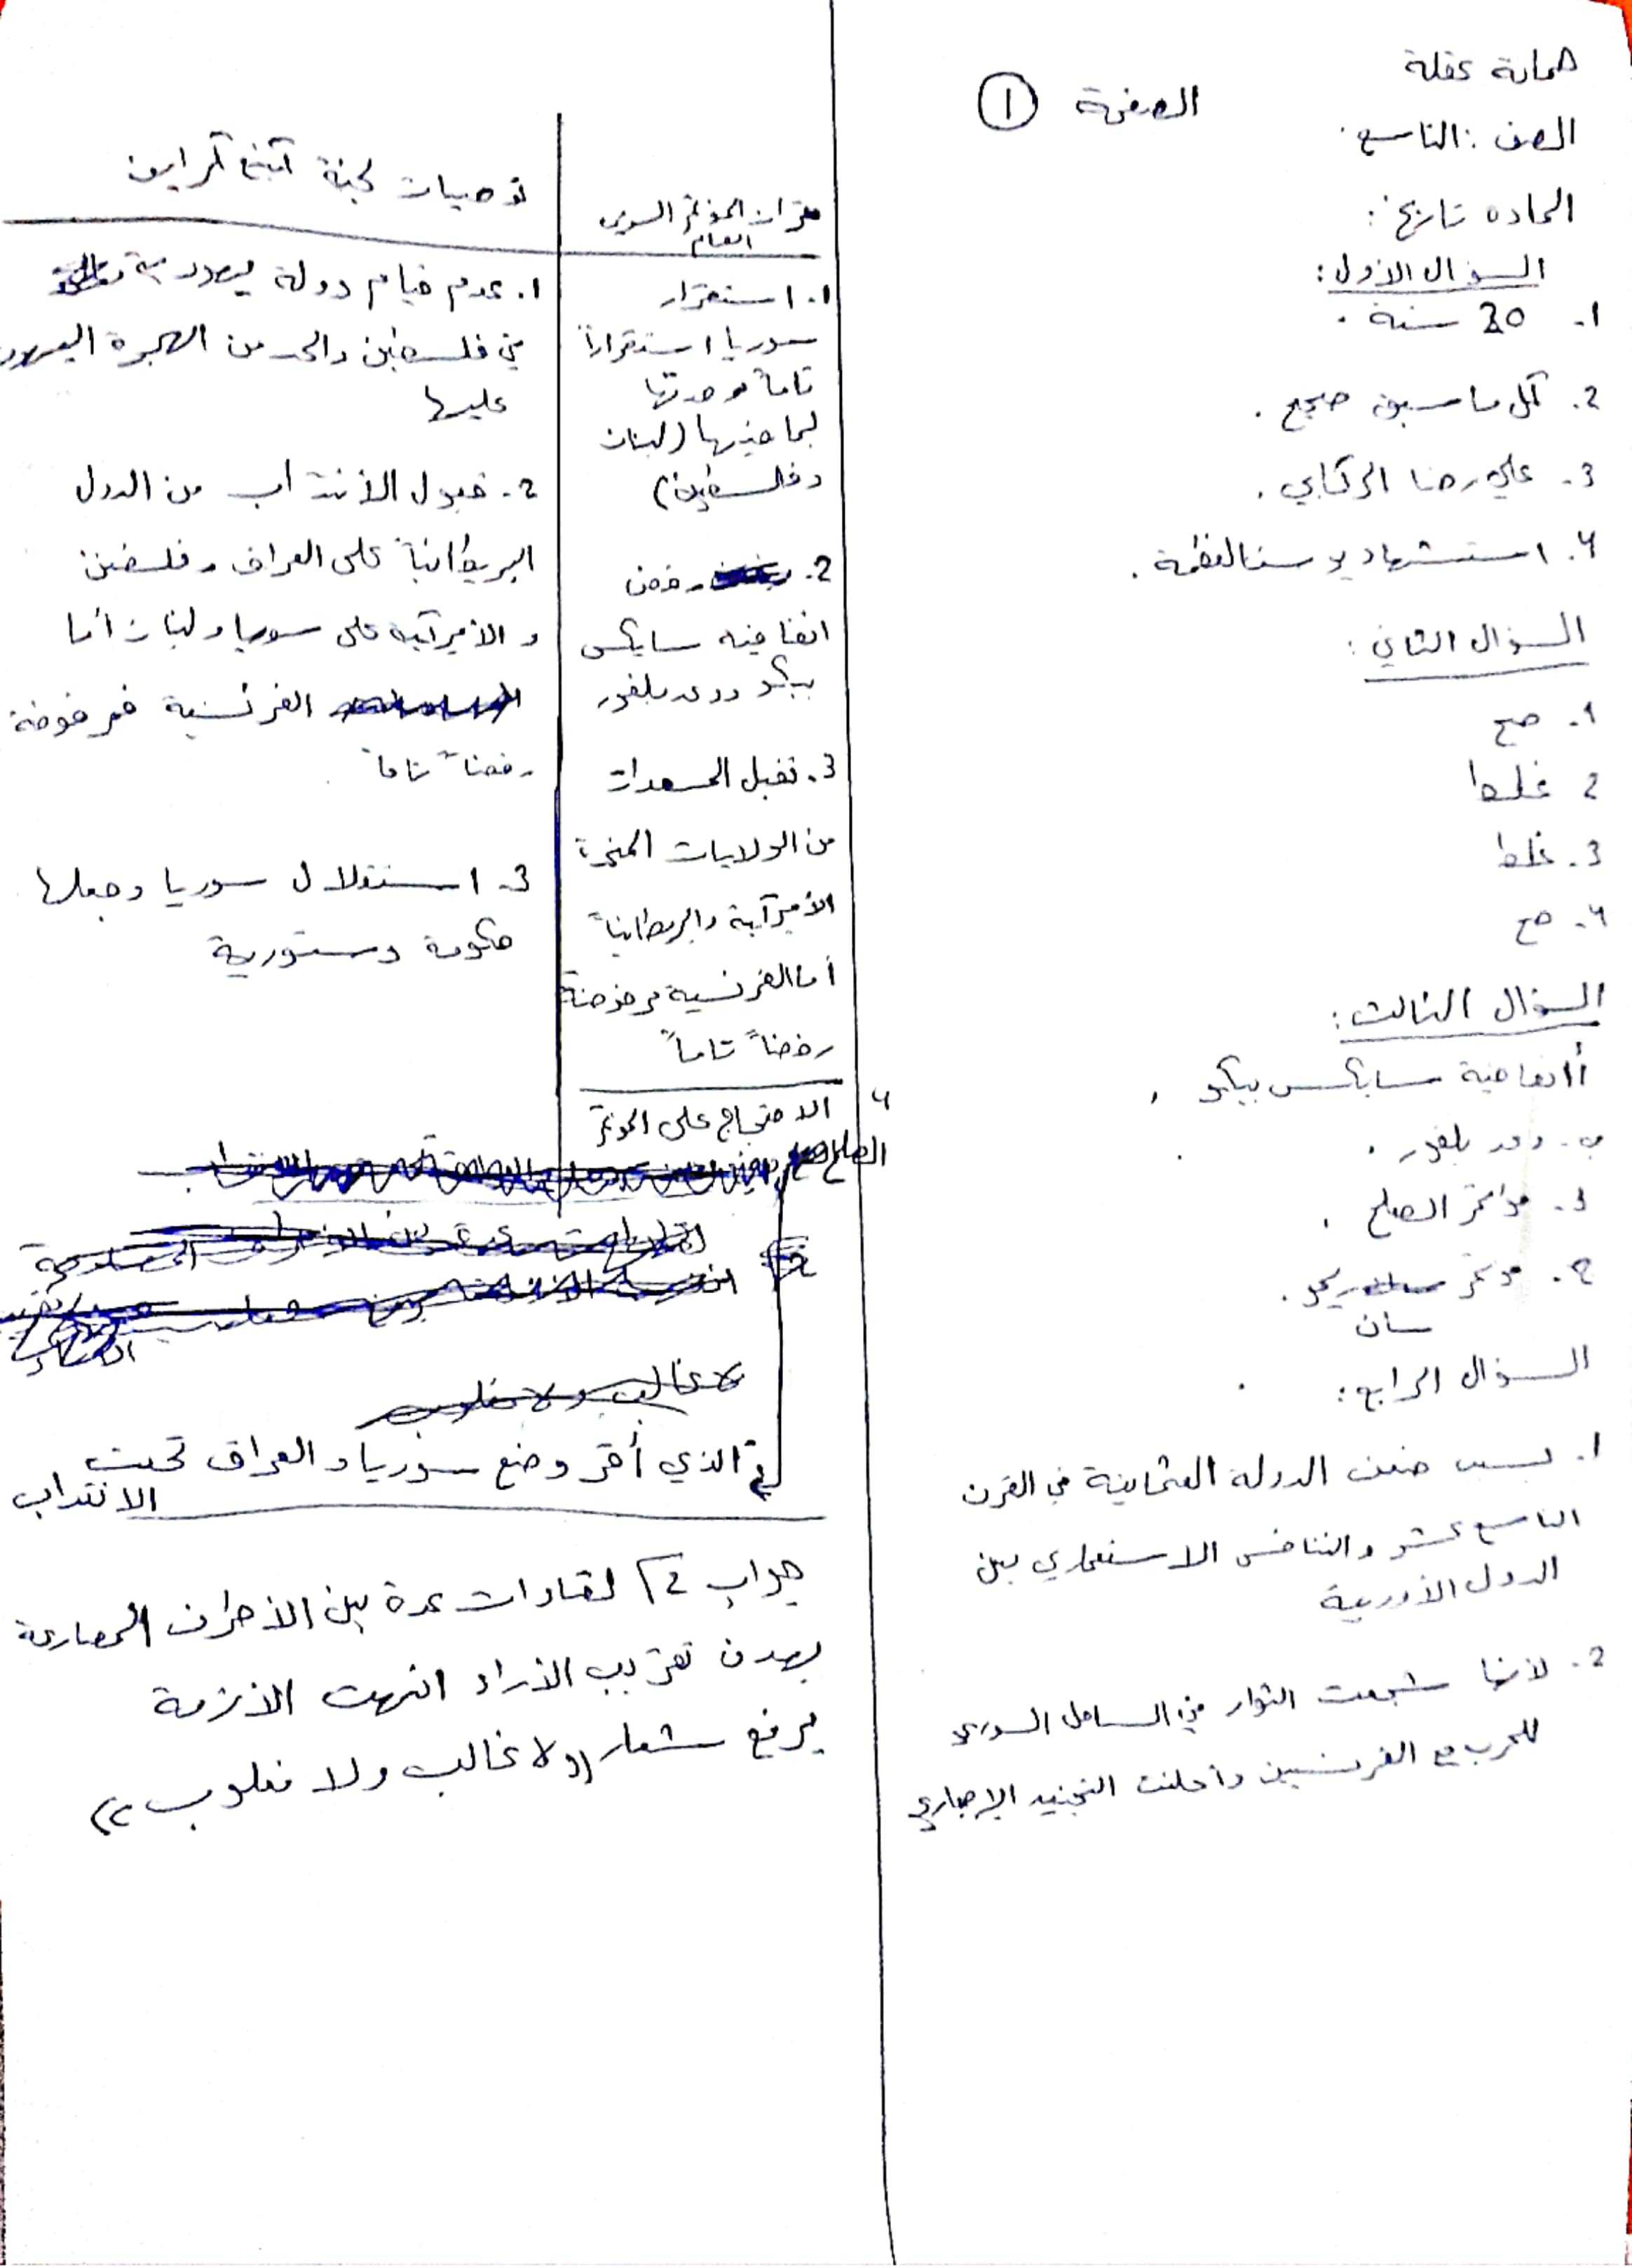 الصفحة ①
الصف : التاسع .
المادة تاريخ :
السؤال الأول :
1. 20 سنة .
2. كل ما سبق صحيح .
3. علي رضا الركابي .
4. استشهاد يوسف العظمة .
السؤال الثاني :
1. صح
2 غلط
3. غلط
4. صح
السؤال الثالث :
أ اتفاقية سايكس بيكو .
ب. وعد بلفور .
3. مؤتمر الصلح .
ح. مؤتمر ريمو .
سان
السؤال الرابع :
1. بسبب ضعف الدولة العثمانية في القرن
التاسع عشر والتنافس الاستعماري بين
الدول الأوربية
2. لأنها شجعت الثوار في الساحل السوري
للحرب مع الفرنسيين وأعلنت التجنيد الإجباري
مقررات المؤتمر السوري
العام
1. استقرار
سوريا استقراراً
تاماً بوحدتها
بما فيها (لبنان
وفلسطين)
2. رفض
اتفاقية سايكس
بيكو ووعد بلفور
3. تقبل المسعدات
من الولايات المتحدة
الأميركية والبريطانية
أما الفرنسية مرفوضة
رفضاً تاماً
4 الاحتجاج على المؤتمر
الصلح
الذي أقر وضع سوريا والعراق تحت
الانتداب
توصيات لجنة كينغ كراين
1. عدم قيام دولة يهودية
في فلسطين والحد من الهجرة اليهود
عليها
2. قبول الأنتداب من الدول
البريطانية على العراق وفلسطين
والأميركية على سوريا ولبنان أما
الفرنسية فمرفوضة
رفضاً تاماً
3. استقلال سوريا وجعلها
حكومة دستورية
جواب 2) لقاءات عدة بين الأطراف المصارعة
بهدف تقريب الأراء انتهت الأزمة
برفع شعار ((لا غالب ولا مغلوب))